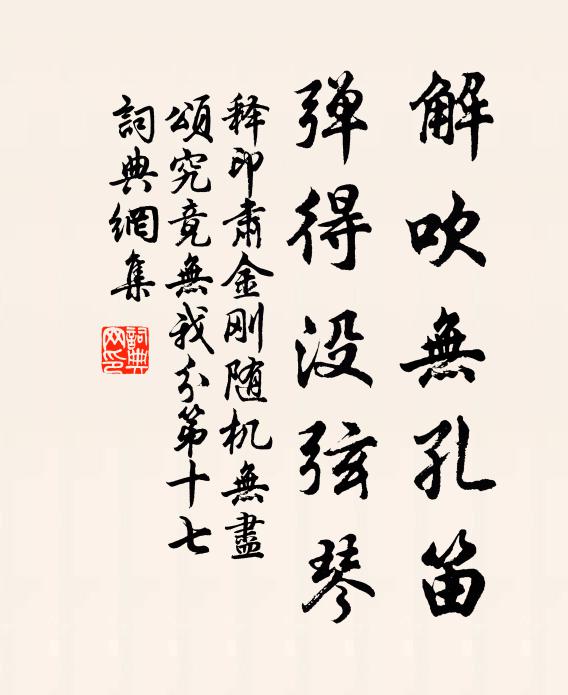 解吹無孔笛
弹得没弦琴
释印肃金刚随机無盡
頌究竟無我分第十七
詞典網集
詞典网印